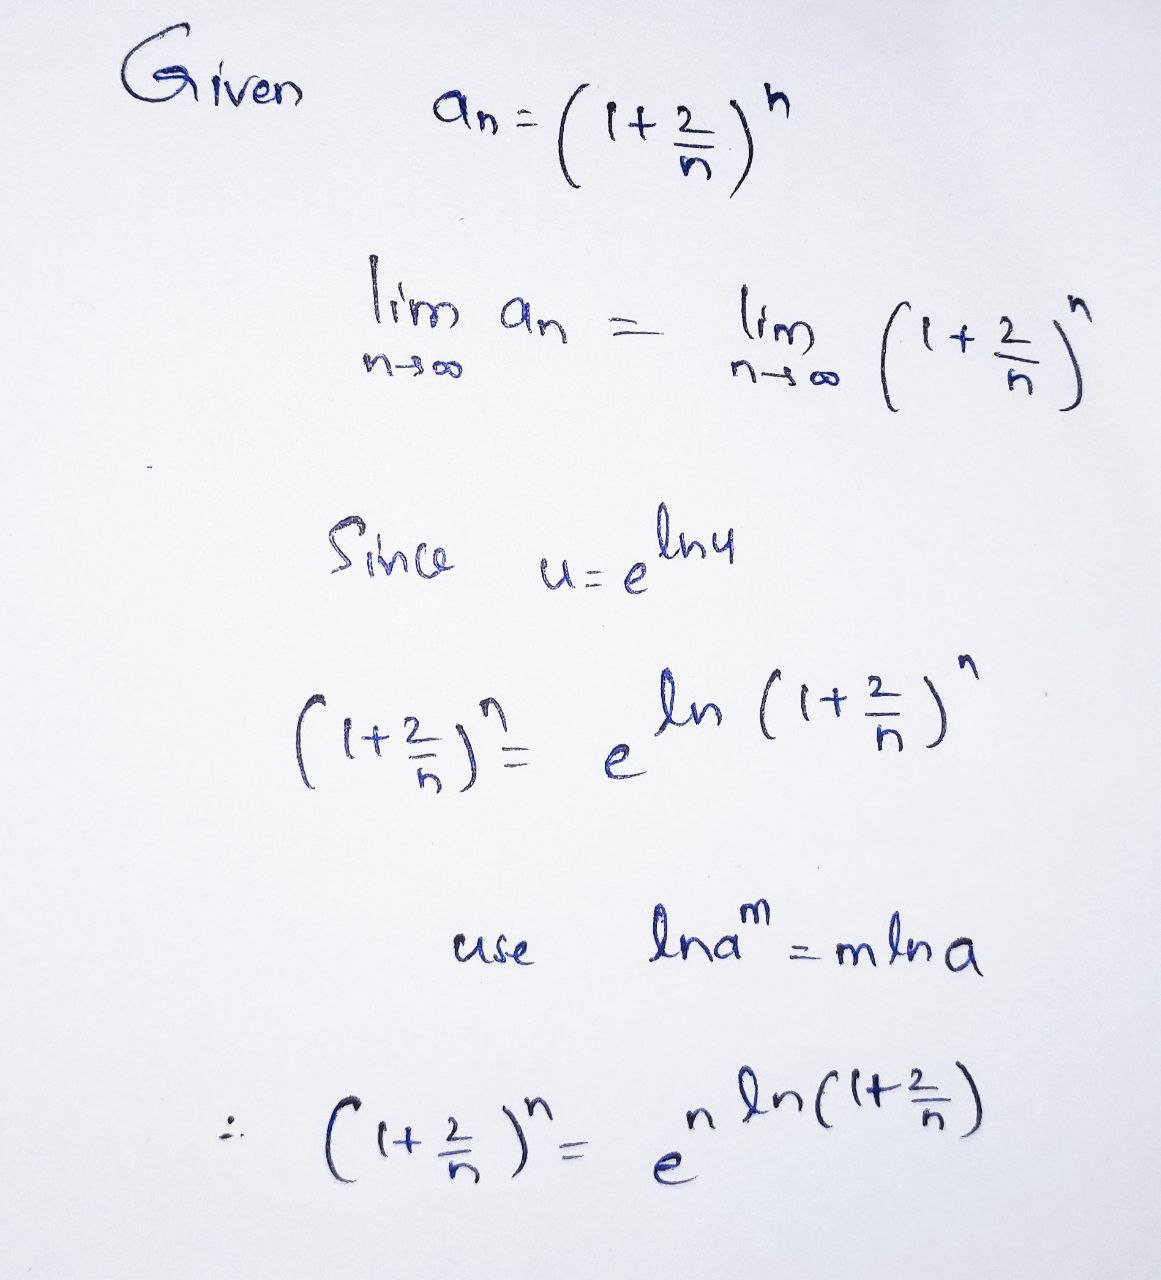 Given aₙ = (1 + 2/n)ⁿ
lim n→∞ aₙ = lim n→∞ (1 + 2/n)ⁿ
Since u = e^(ln u)
(1 + 2/n)ⁿ = e^(ln (1 + 2/n)ⁿ)
use ln aᵐ = m ln a
∴ (1 + 2/n)ⁿ = e^(n ln(1 + 2/n))